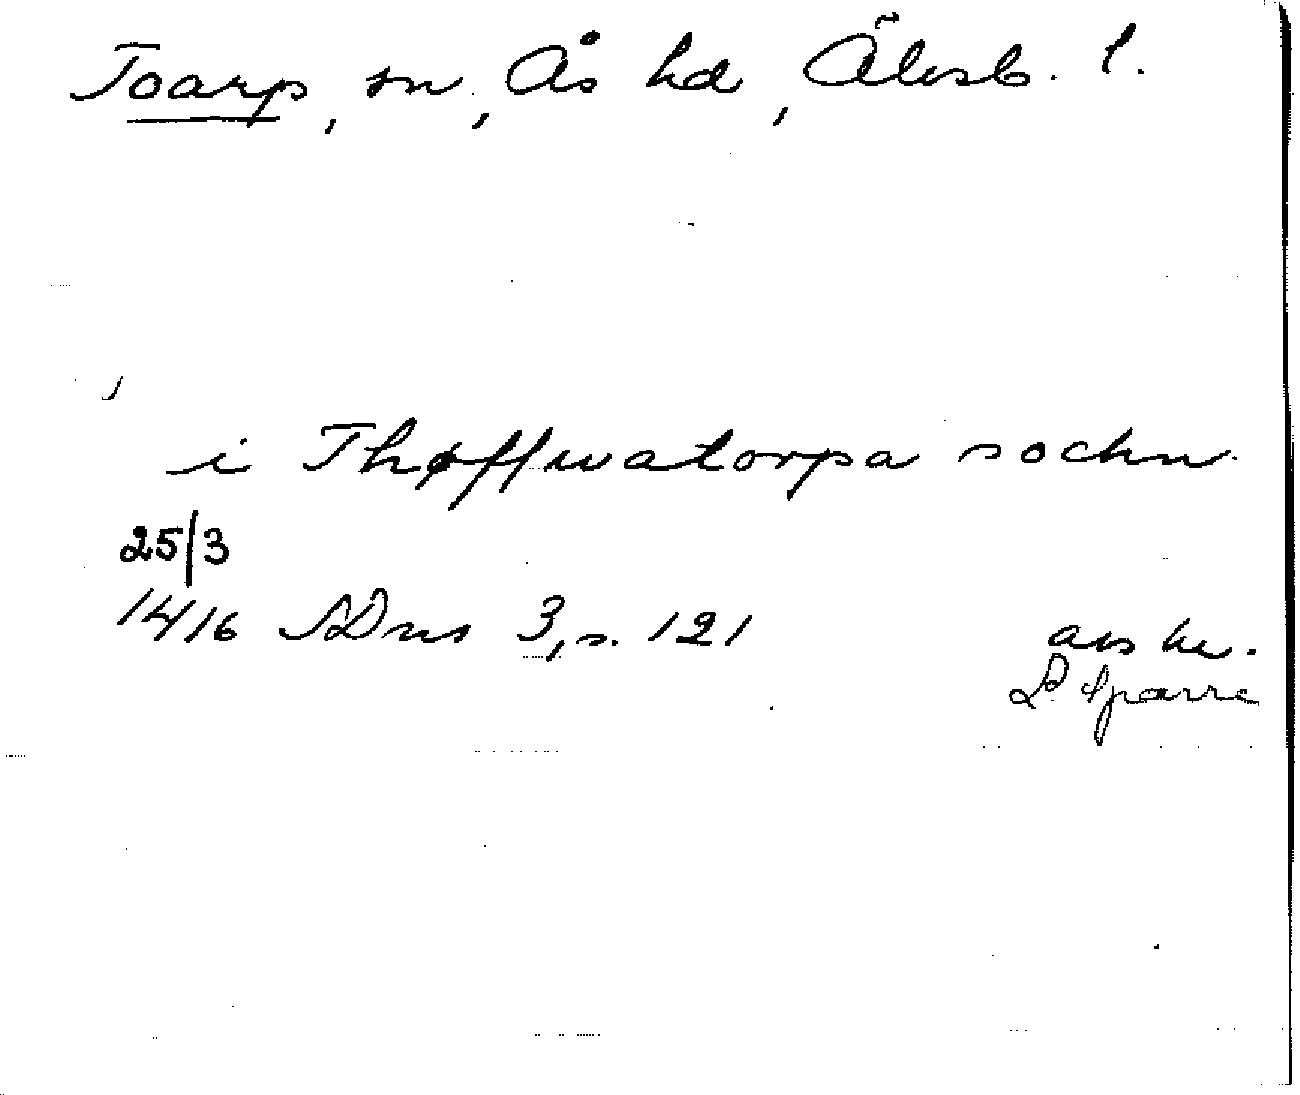 Toarp, sn, Ås hd, Älvsb. l.
i Thøffwatorpa sochn
25/3
1416 SDns 3, s. 121 avskr.
P Sparre